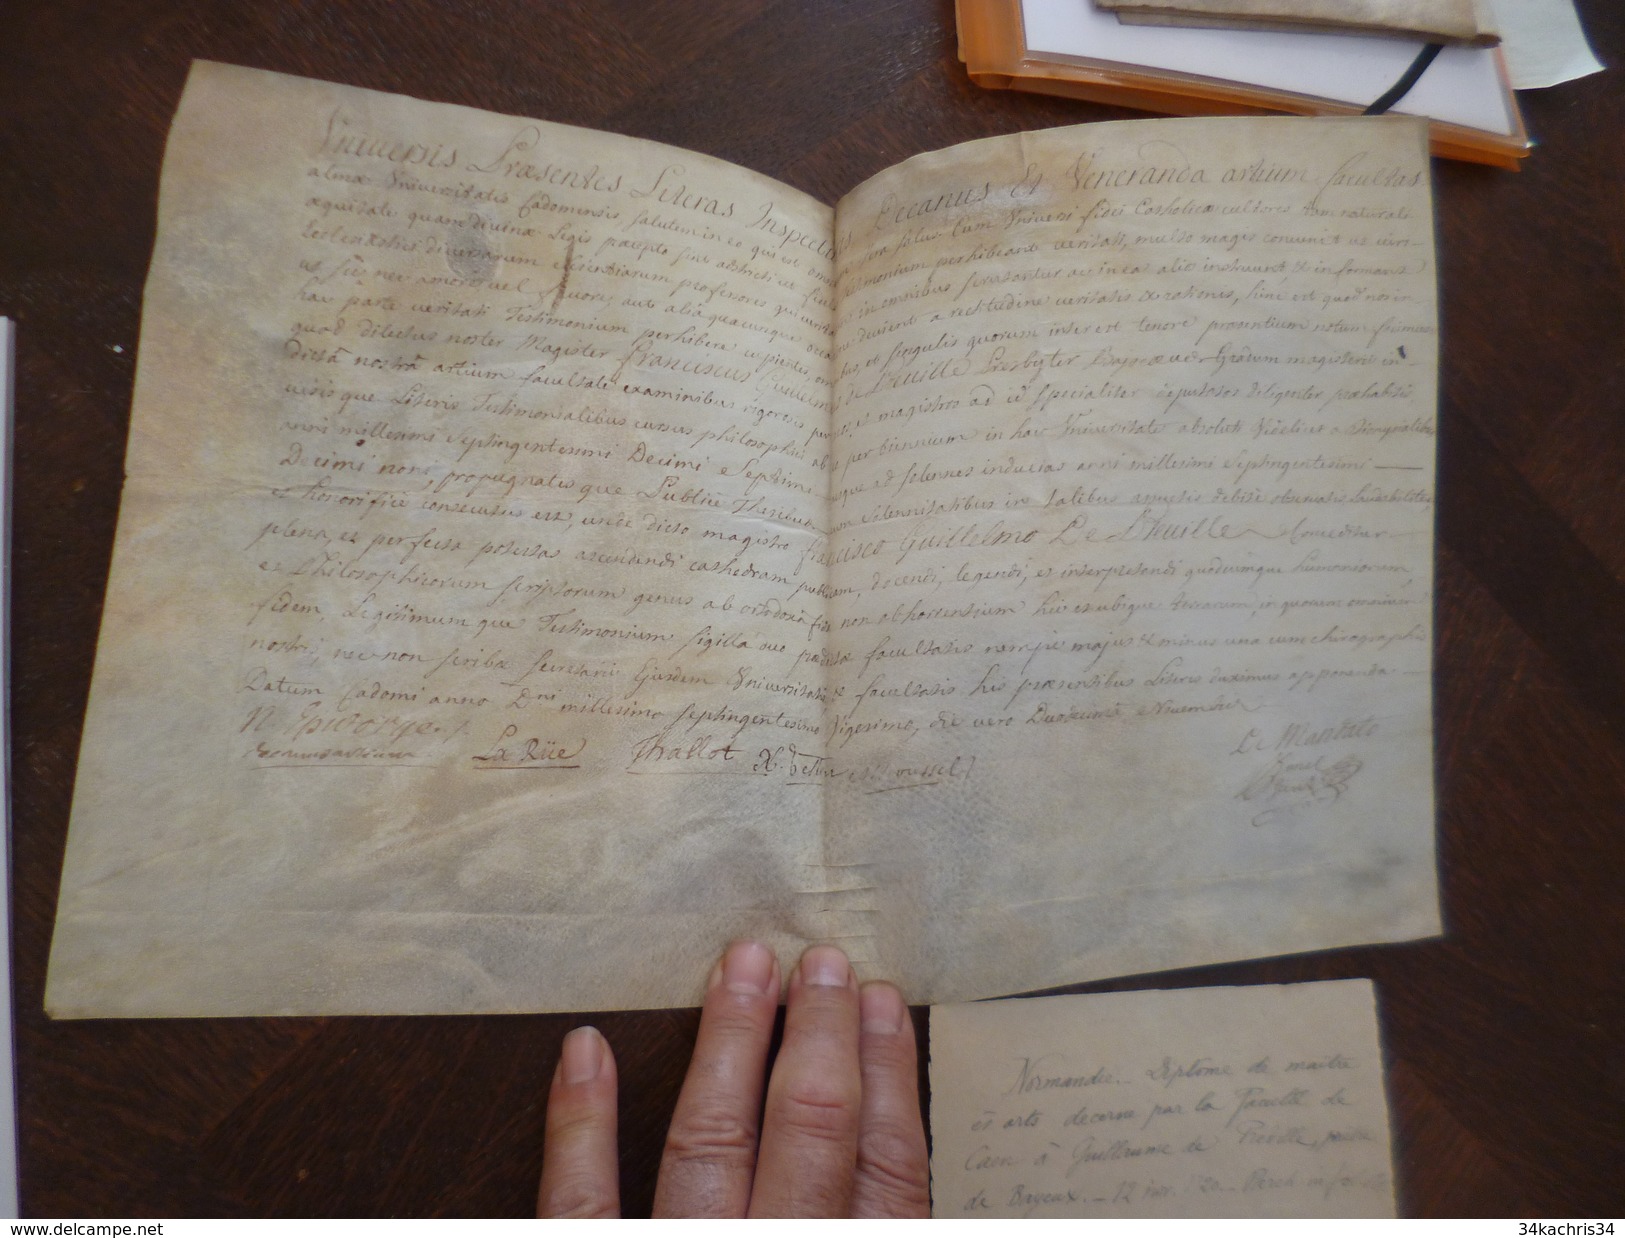 Universis Præsentes Literas Inspecturis Decanus Et Veneranda artium facultas
almæ Universitatis Cadomensis salutem in eo qui est omnium vera salus. Cum Universi fidei Catholicæ cultores tam naturali
æquitate quam divinæ Legis præcepto sint adstricti ut fidele testimonium perhibeant veritati, multo magis convenit ut viri
Ecclesiastici diversarum scientiarum professores qui veritatem in omnibus scrutantur ac in ea alios instruunt, & informant
ut sic nec amore vel favore, aut alia quacumque occasione devient a rectitudine veritatis & rationis, hinc est quod nos in
hac parte veritati Testimonium perhibere cupientes, omnibus, et singulis quorum interest tenore præsentium notum facimus
quod dilectus noster Magister Franciscus Guillelmus de Preville Presbyter Gradum magisterii in
dictâ nostrâ artium facultate examinibus rigorosis per magistros ad id specialiter deputatos diligenter præhabitis,
visisque Literis Testimonialibus cursus philosophici ab per biennium in hac Universitate absoluti Videlicet a
anni millesimi Septingentesimi Decimi & Septimi usque ad solennes inducias anni millesimi Septingentesimi
Decimi noni, propugnatisque Publicè Thesibus non solennitatibus in talibus assuetis debitè observatis
et honorificè consecutus est, unde dicto magistro Francisco Guillelmo De Preville Conceditur
plena, et perfecta potestas ascendendi cathedram publicam, docendi, legendi, et interpretandi quodcumque humaniorum,
et Philosophicorum scriptorum genus ab ortodoxâ fide non abhorrentium hic et ubique terrarum, in quorum omnium
fidem, Legitimumque Testimonium sigilla duo prædictæ facultatis nempe majus & minus una cum chirographis
nostri, nec non scribæ secretarii Ejusdem Universitatis & facultatis his præsentibus Literis duximus apponenda
Datum Cadomi anno Dni millesimo septingentesimo Vigesimo, die vero Duodecimâ Novembris
De Mandato
La Rüe Thallot
Normandie. Diplome de maitre
ès arts décerné par la Faculté de
Caen à Guillaume de Preville, prêtre
de Bayeux. — 12 nov. 1720.
delcampe.net
34kachris34